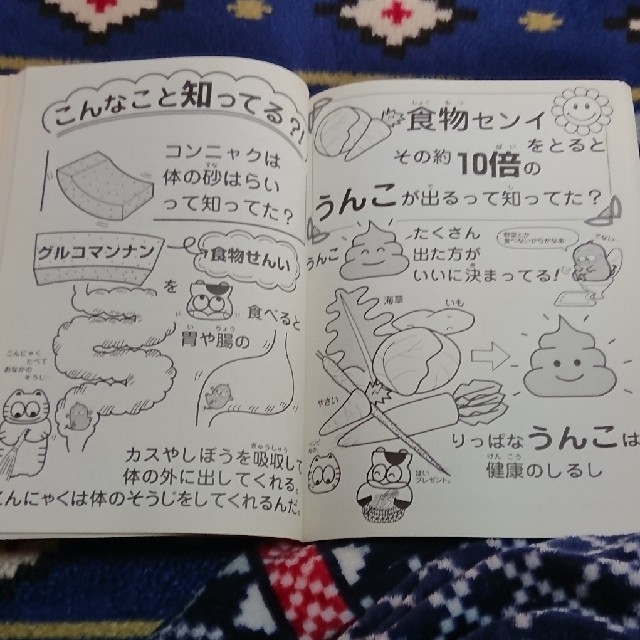 こんなこと知ってる?
コンニャクは
体の砂はらい
って知ってた?
グルコマンナン
食物せんい
を
食べると
胃や腸の
こんにゃく
たべて
おなかの
そうじ
カスやしぼうを吸収して
体の外に出してくれる。
こんにゃくは体のそうじをしてくれるんだ。
食物センイ
をとると
その約10倍の
うんこが出るって知ってた?
うんこ
たくさん
出た方が
いいに決まってる!
海草
いも
やさい
はい
プレゼント。
りっぱなうんこは
健康のしるし